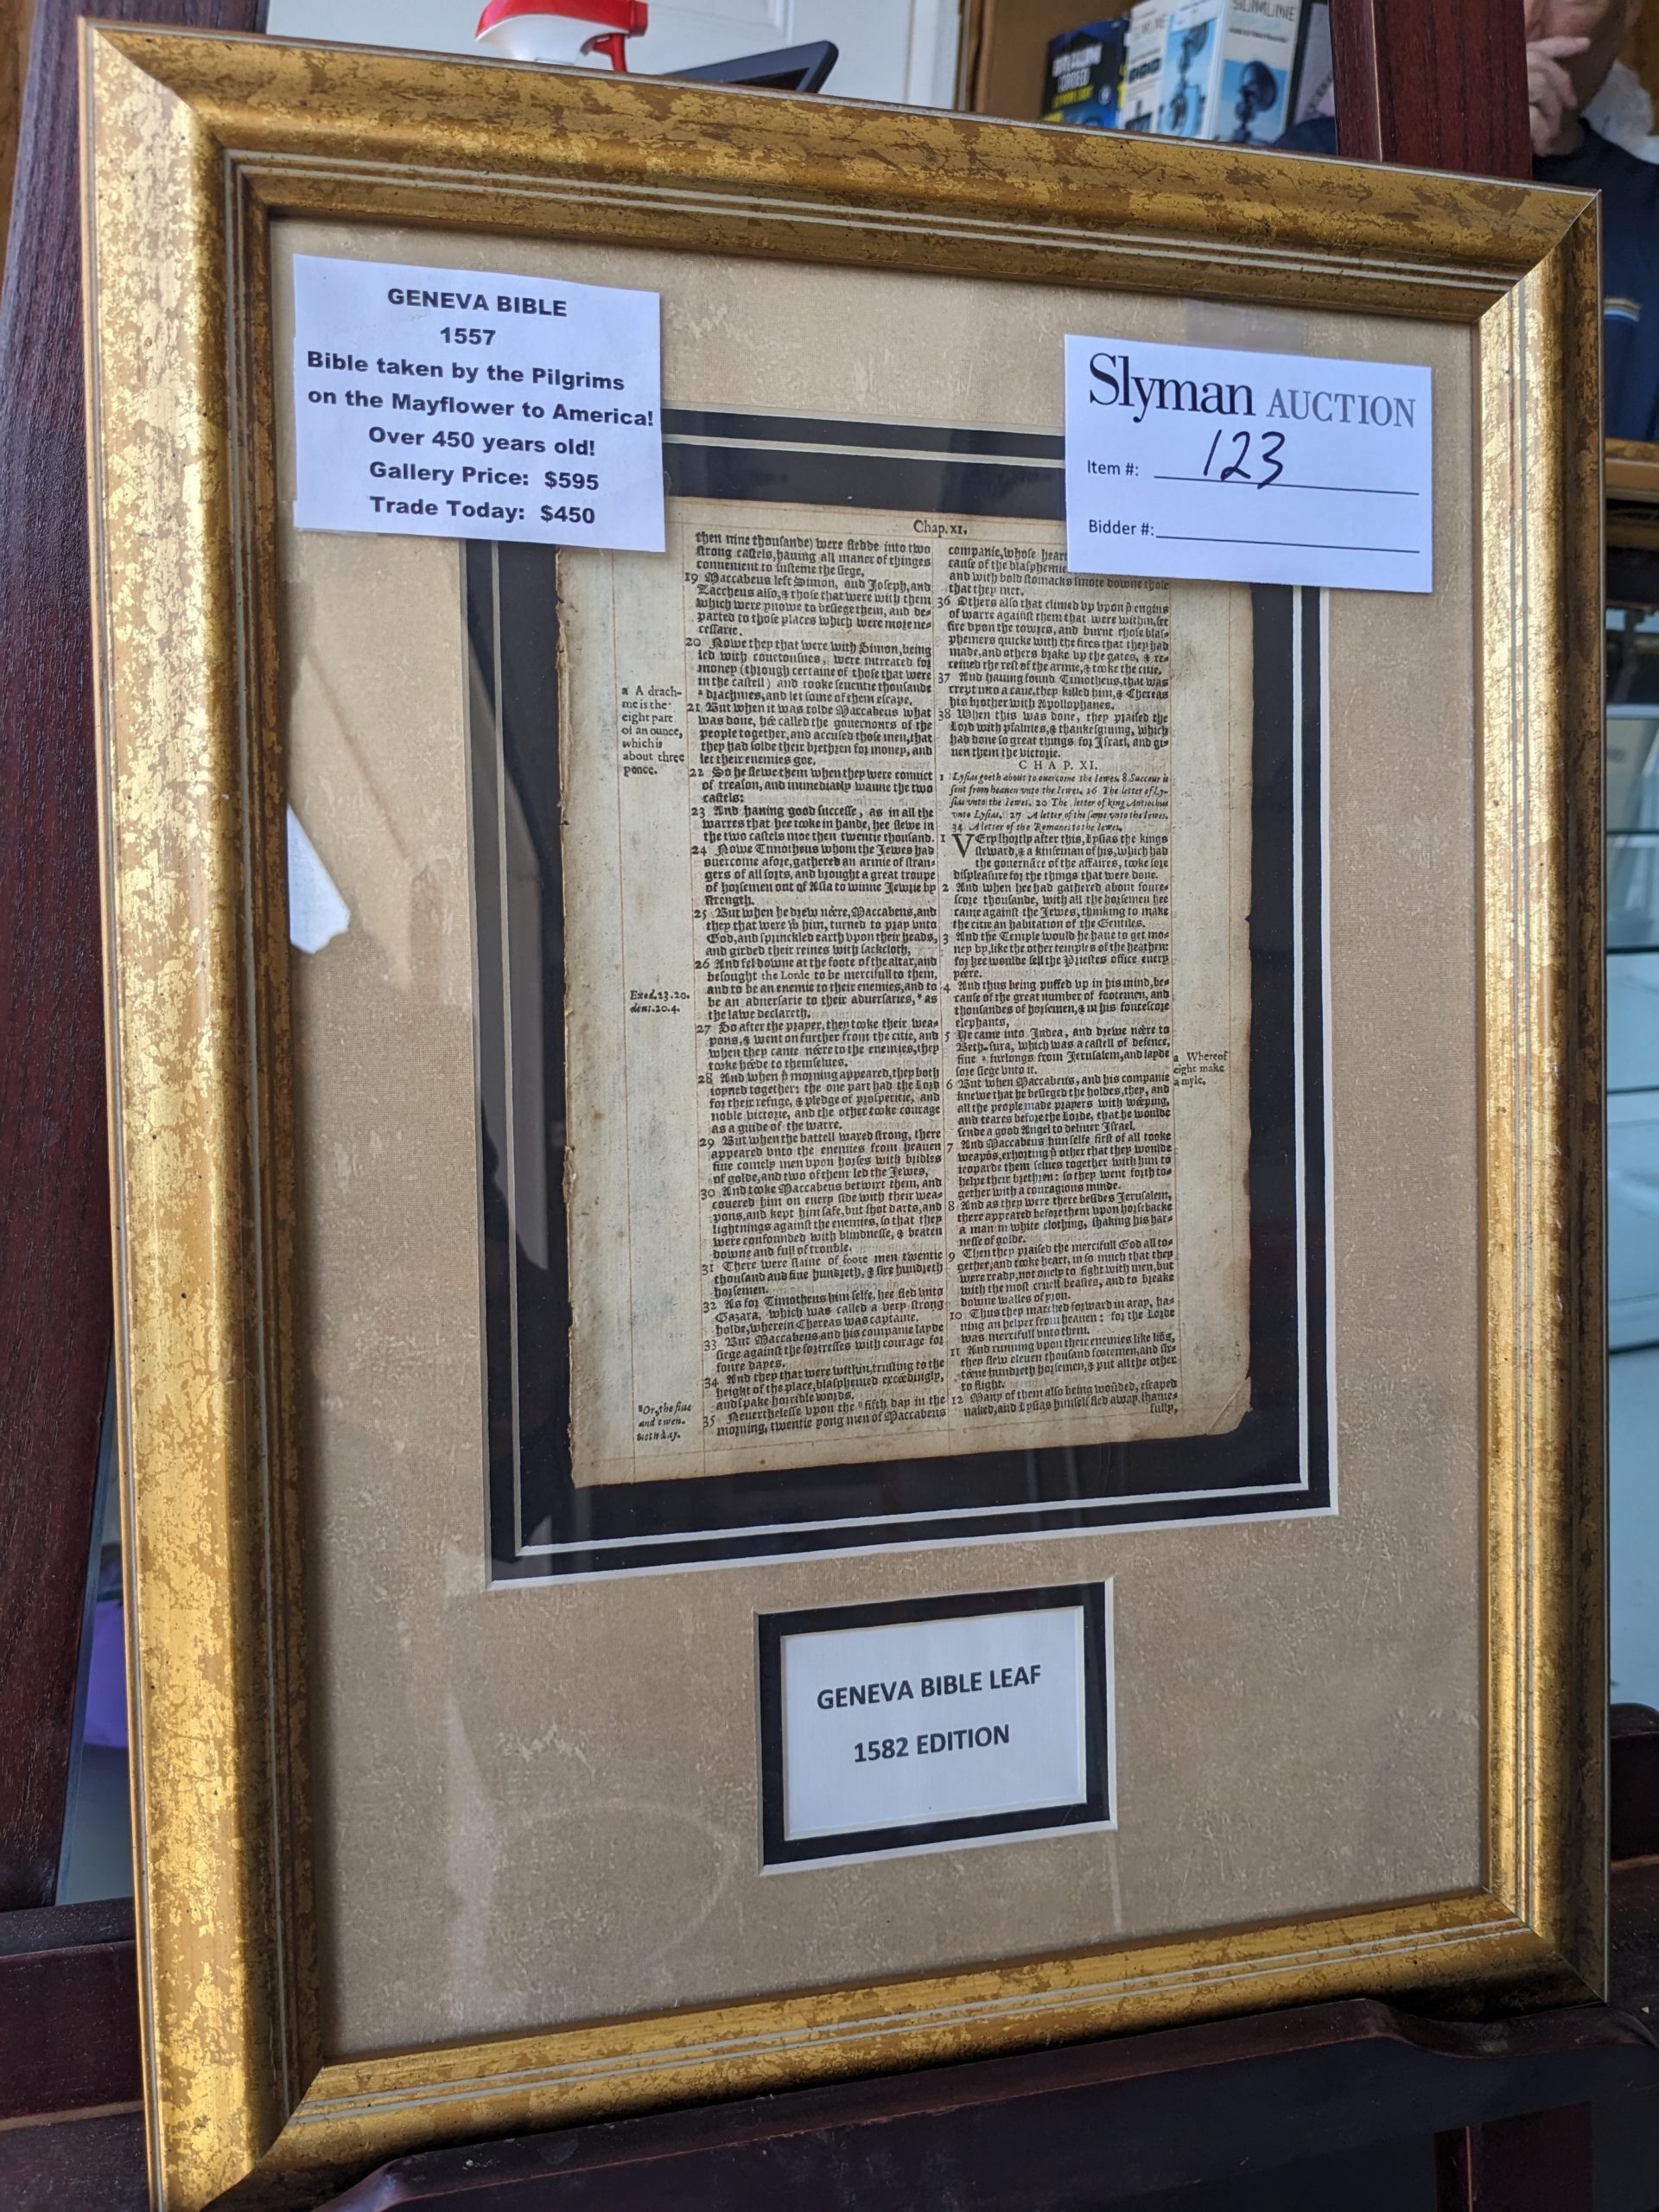 GENEVA BIBLE
1557
Bible taken by the Pilgrims
on the Mayflower to America!
Over 450 years old!
Gallery Price: $595
Trade Today: $450
Slyman AUCTION
Item #: 123
Bidder #:
Chap. xi.
then nine thousande) were fledde into two
strong castels, hauing all maner of thinges
conuenient to susteine the siege,
19 Maccabeus left Simon, and Joseph, and
Zaccheus also, & those that were with them
which were ynowe to besiege them, and de-
parted to those places which were more ne-
cessarie.
20 Nowe they that were with Simon, being
led with couetousnes, were intreated for
money (through certaine of those that were
in the castell) and tooke seuentie thousande
a drachmes, and let some of them escape.
21 But when it was tolde Maccabeus what
was done, hee called the gouernours of the
people together, and accused those men, that
they had solde their brethren for money, and
let their enemies goe.
22 So he slewe them when they were conuict
of treason, and immediatly wanne the two
castels:
23 And hauing good successe, as in all the
warres that hee tooke in hande, hee slewe in
the two castels moe then twentie thousand.
24 Nowe Timotheus whom the Jewes had
ouercome afore, gathered an armie of stran-
gers of all sorts, and brought a great troupe
of horsemen out of Asia to winne Jewrie by
strength.
25 But when he drew neere, Maccabeus, and
they that were with him, turned to pray vnto
God, and sprinckled earth vpon their heads,
and girded their reines with sackcloth,
26 And fel downe at the foote of the altar, and
besought the Lorde to be mercifull to them,
and to be an enemie to their enemies, and to
be an aduersarie to their aduersaries, * as
the lawe declareth.
27 So after the prayer, they tooke their wea-
pons, & went on further from the citie, and
when they came neere to the enemies, they
tooke heede to themselues.
28 And when ye morning appeared, they both
ioyned together: the one part had the Lord
for their refuge, & pledge of prosperitie, and
noble victorie, and the other tooke courage
as a guide of the warre.
29 But when the battell waxed strong, there
appeared vnto the enemies from heauen
fiue comely men vpon horses with bridles
of golde, and two of them led the Jewes,
30 And tooke Maccabeus betwixt them, and
couered him on euery side with their wea-
pons, and kept him safe, but shot darts, and
lightnings against the enemies, so that they
were confounded with blindnesse, & beaten
downe and full of trouble.
31 There were slaine of foote men twentie
thousand and fiue hundreth, & sixe hundreth
horsemen.
32 As for Timotheus him selfe, hee fled vnto
Gazara, which was called a very strong
holde, wherein Chereas was captaine.
33 But Maccabeus and his companie layde
siege against the fortresses with courage for
foure dayes.
34 And they that were within, trusting to the
height of the place, blasphemed exceedingly,
and spake horrible words.
35 Neuerthelesse vpon the " fifth day in the
morning, twentie yong men of Maccabeus
a A drach-
me is the
eight part
of an ounce,
which is
about three
pence.
Exod. 23.20.
deut. 20.4.
"Or, the fiue
and twen-
tieth day.
companie, whose heart
cause of the blasphemie
and with bold stomacks smote downe those
that they met.
36 Others also that climed vp vpon ye engins
of warre against them that were within, set
fire vpon the towres, and burnt those blas-
phemers quicke with the fires that they had
made, and others brake vp the gates, & re-
ceiued the rest of the armie, & tooke the citie.
37 And hauing found Timotheus, that was
crept into a caue, they killed him, & Chereas
his brother with Apollophanes.
38 When this was done, they praised the
Lord with psalmes, & thankesgiuing, which
had done so great things for Israel, and gi-
uen them the victorie.
CHAP. XI.
1 Lysias goeth about to ouercome the Iewes. 8 Succour is
sent from heauen vnto the Iewes. 16 The letter of Ly-
sias vnto the Iewes. 20 The letter of king Antiochus
vnto Lysias. 27 A letter of the same vnto the Iewes.
34 A letter of the Romanes to the Iewes.
1 VEry shortly after this, Lysias the kings
steward, & a kinseman of his, which had
the gouernãce of the affaires, tooke sore
displeasure for the things that were done.
2 And when hee had gathered about foure-
score thousande, with all the horsemen hee
came against the Jewes, thinking to make
the citie an habitation of the Gentiles.
3 And the Temple would he haue to get mo-
ney by, like the other temples of the heathen:
for hee woulde sell the Priestes office euery
yeere.
4 And thus being puffed vp in his mind, be-
cause of the great number of footemen, and
thousandes of horsemen, & in his fourescore
elephants,
5 He came into Judea, and drewe neere to
Beth-sura, which was a castell of defence,
fiue a furlongs from Jerusalem, and layde
sore siege vnto it.
6 But when Maccabeus, and his companie
knewe that he besieged the holdes, they, and
all the people made prayers with weeping,
and teares before the Lorde, that he woulde
sende a good Angel to deliuer Israel.
7 And Maccabeus him selfe first of all tooke
weapõs, exhorting ye other that they woulde
ieoparde them selues together with him to
helpe their brethren: so they went forth to-
gether with a couragious minde.
8 And as they were there besides Jerusalem,
there appeared before them vpon horsebacke
a man in white clothing, shaking his har-
nesse of golde.
9 Then they praised the mercifull God all to-
gether, and tooke heart, in so much that they
were ready, not onely to fight with men, but
with the most cruell beastes, and to breake
downe walles of yron.
10 Thus they marched forward in aray, ha-
uing an helper from heauen: for the Lorde
was mercifull vnto them.
11 And running vpon their enemies like liõs,
they slew eleuen thousand footemen, and six-
teene hundreth horsemen, & put all the other
to flight.
12 Many of them also being woũded, escaped
naked, and Lysias himself fled away shame-
fully,
a Whereof
eight make
a myle.
GENEVA BIBLE LEAF
1582 EDITION